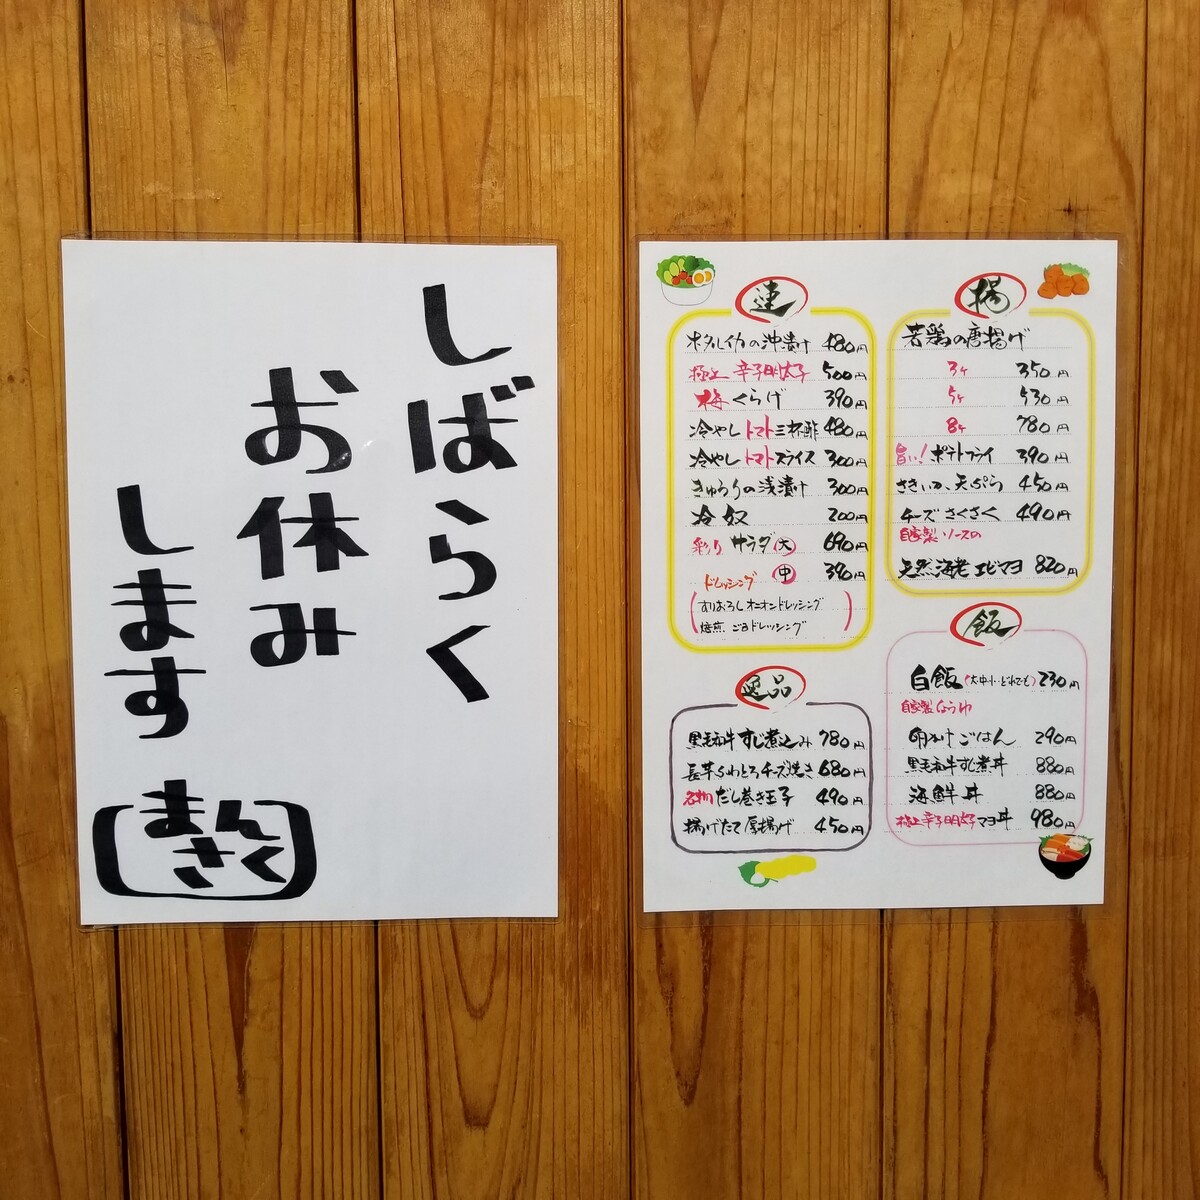 しばらく
お休み
します
まん
さく
速
ホタルイカの沖漬け 480円
極上 辛子明太子 500円
梅くらげ 390円
冷やしトマト三杯酢 480円
冷やしトマトスライス 300円
きゅうりの浅漬け 300円
冷奴 200円
彩りサラダ 大 690円
中 390円
ドレッシング
すりおろしオニオンドレッシング
焙煎ごまドレッシング
逸品
黒毛和牛すじ煮込み 780円
長芋ふわとろチーズ焼き 680円
名物だし巻き玉子 490円
揚げたて厚揚げ 450円
揚
若鶏の唐揚げ
3ケ 350円
5ケ 530円
8ケ 780円
旨い!ポテトフライ 390円
さきいか天ぷら 450円
チーズさくさく 490円
自家製ソースの
天然海老エビマヨ 820円
飯
白飯(大・中・小・どれでも) 230円
自家製しょうゆ
卵かけごはん 290円
黒毛和牛すじ煮丼 880円
海鮮丼 880円
極上辛子明太子マヨ丼 980円